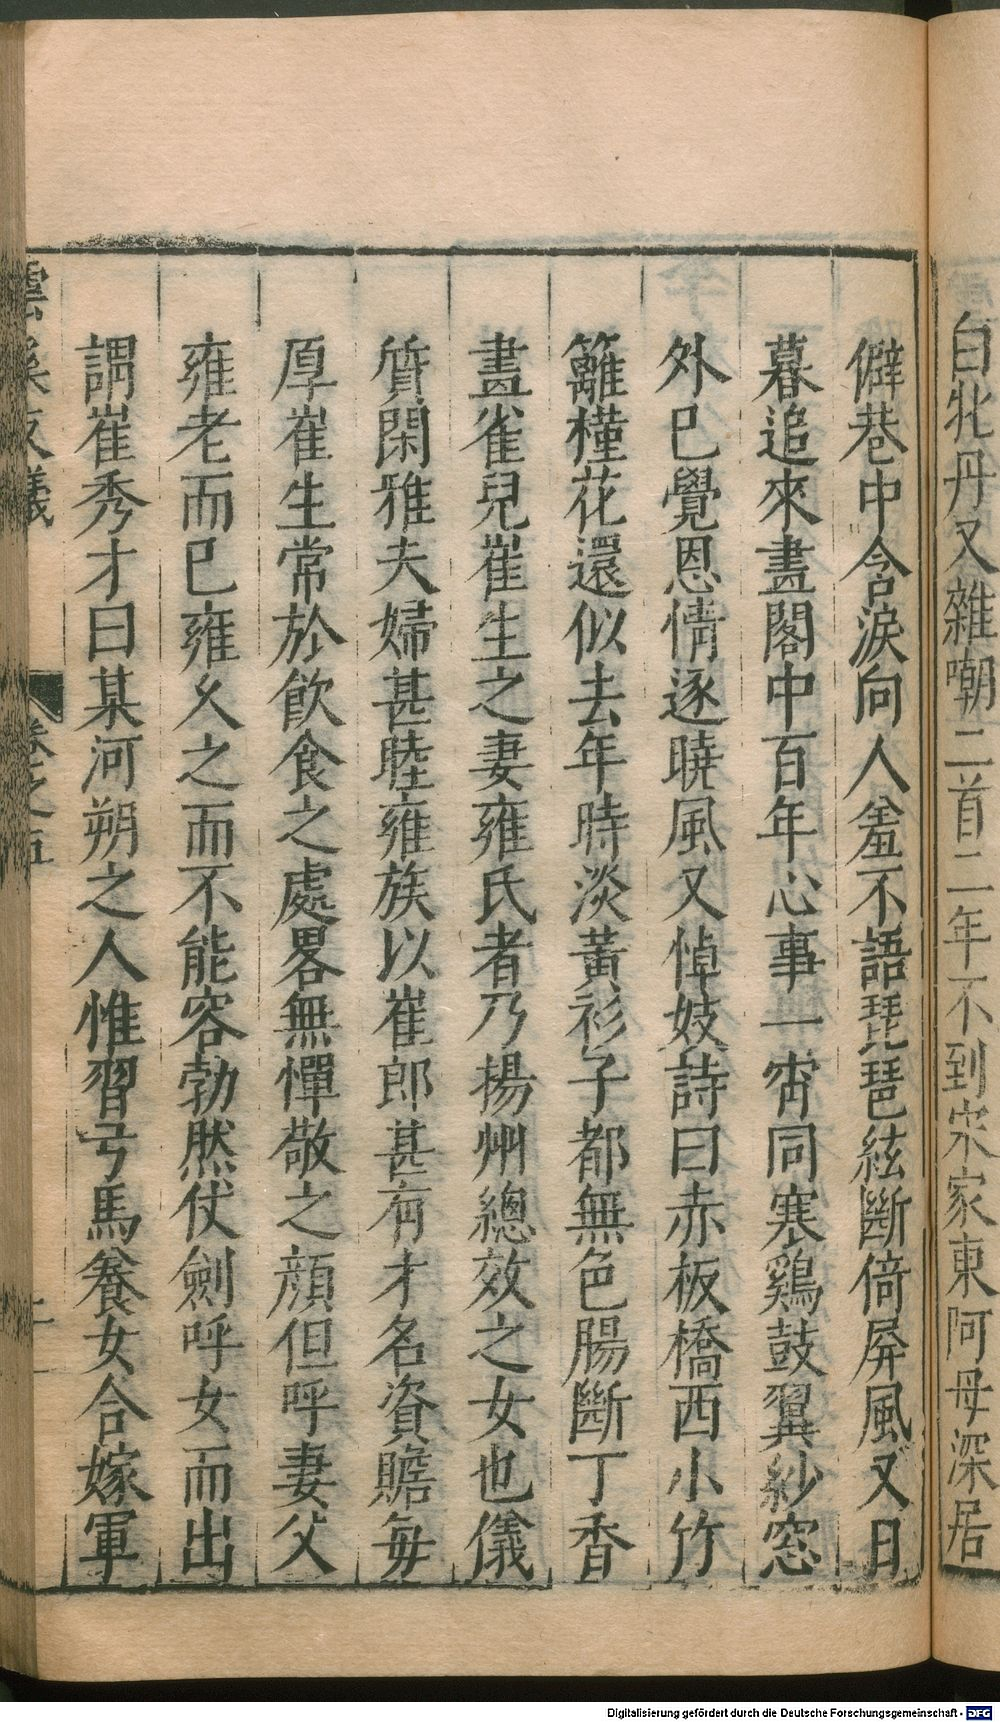 白牝丹又雜嘲二首二年不到宋家東阿母深居
僻巷中含淚向人羞不語琵琶絃斷倚屏風又日
暮追來畫閣中百年心事一宵同寒鷄鼓翼紗窓
外巳覺恩情逐曉風又悼妓詩曰赤板橋西小竹
籬槿花還似去年時淡黃衫子都無色腸斷丁香
畫雀兒崔生之妻雍氏者乃揚州總效之女也儀
質閑雅夫婦甚睦雍族以崔郎甚有才名資贍每
厚崔生常於飲食之處畧無憚敬之顔但呼妻父
雍老而巳雍久之而不能容勃然仗劍呼女而出
謂崔秀才曰某河朔之人惟習弓馬養女合嫁軍
雲溪友議
卷之五
十一
Digitalisierung gefördert durch die Deutsche Forschungsgemeinschaft - DFG